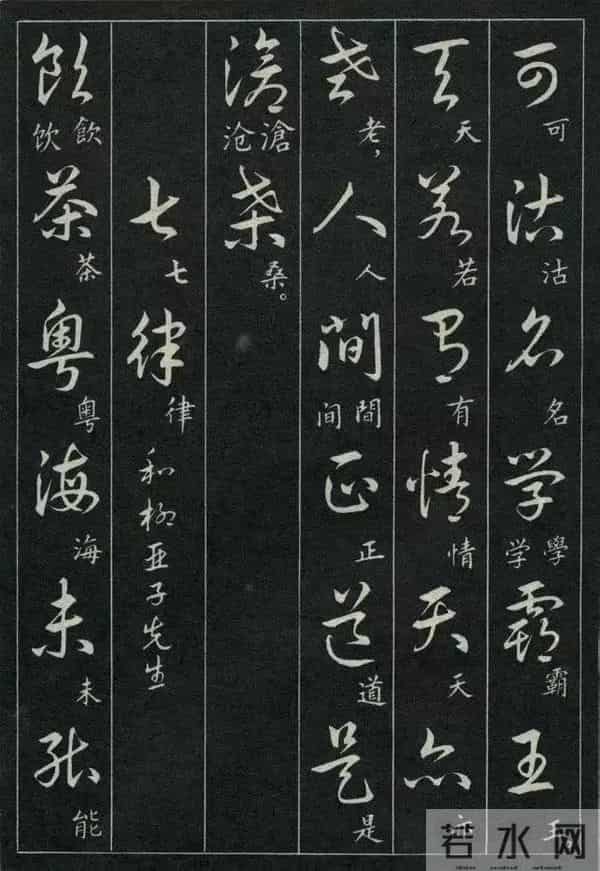 可沽名学霸王
可沽名學学霸王
天若有情天亦
天若有情天亦
老人间正道是
老，人間间正道是
滄桑
滄沧桑。
七律
七律
和柳亚子先生
飲茶粤海未能
飲饮茶粤海未能
若水网